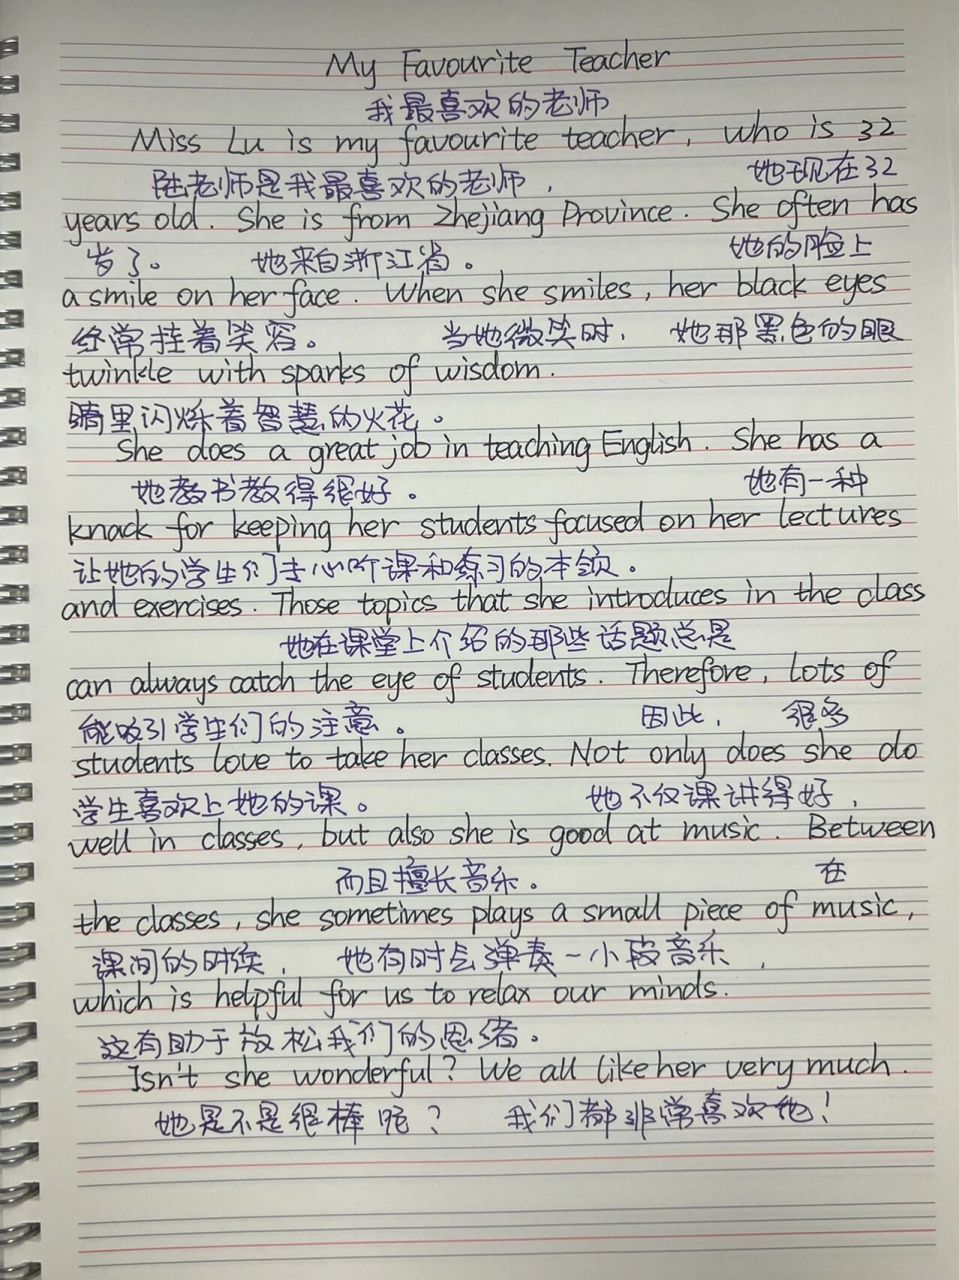 My Favourite Teacher
我最喜欢的老师
Miss Lu is my favourite teacher, who is 32
陆老师是我最喜欢的老师, 她现在32
years old. She is from Zhejiang Province. She often has
岁了。 她来自浙江省。 她的脸上
a smile on her face. When she smiles, her black eyes
经常挂着笑容。 当她微笑时, 她那黑色的眼
twinkle with sparks of wisdom.
睛里闪烁着智慧的火花。
She does a great job in teaching English. She has a
她教书教得很好。 她有一种
knack for keeping her students focused on her lectures
让她的学生们专心听课和练习的本领。
and exercises. Those topics that she introduces in the class
她在课堂上介绍的那些话题总是
can always catch the eye of students. Therefore, lots of
能吸引学生们的注意。 因此, 很多
students love to take her classes. Not only does she do
学生喜欢上她的课。 她不仅课讲得好,
well in classes, but also she is good at music. Between
而且擅长音乐。 在
the classes, she sometimes plays a small piece of music,
课间的时候, 她有时会弹奏一小段音乐,
which is helpful for us to relax our minds.
这有助于放松我们的思绪。
Isn't she wonderful? We all like her very much.
她是不是很棒呢? 我们都非常喜欢她!